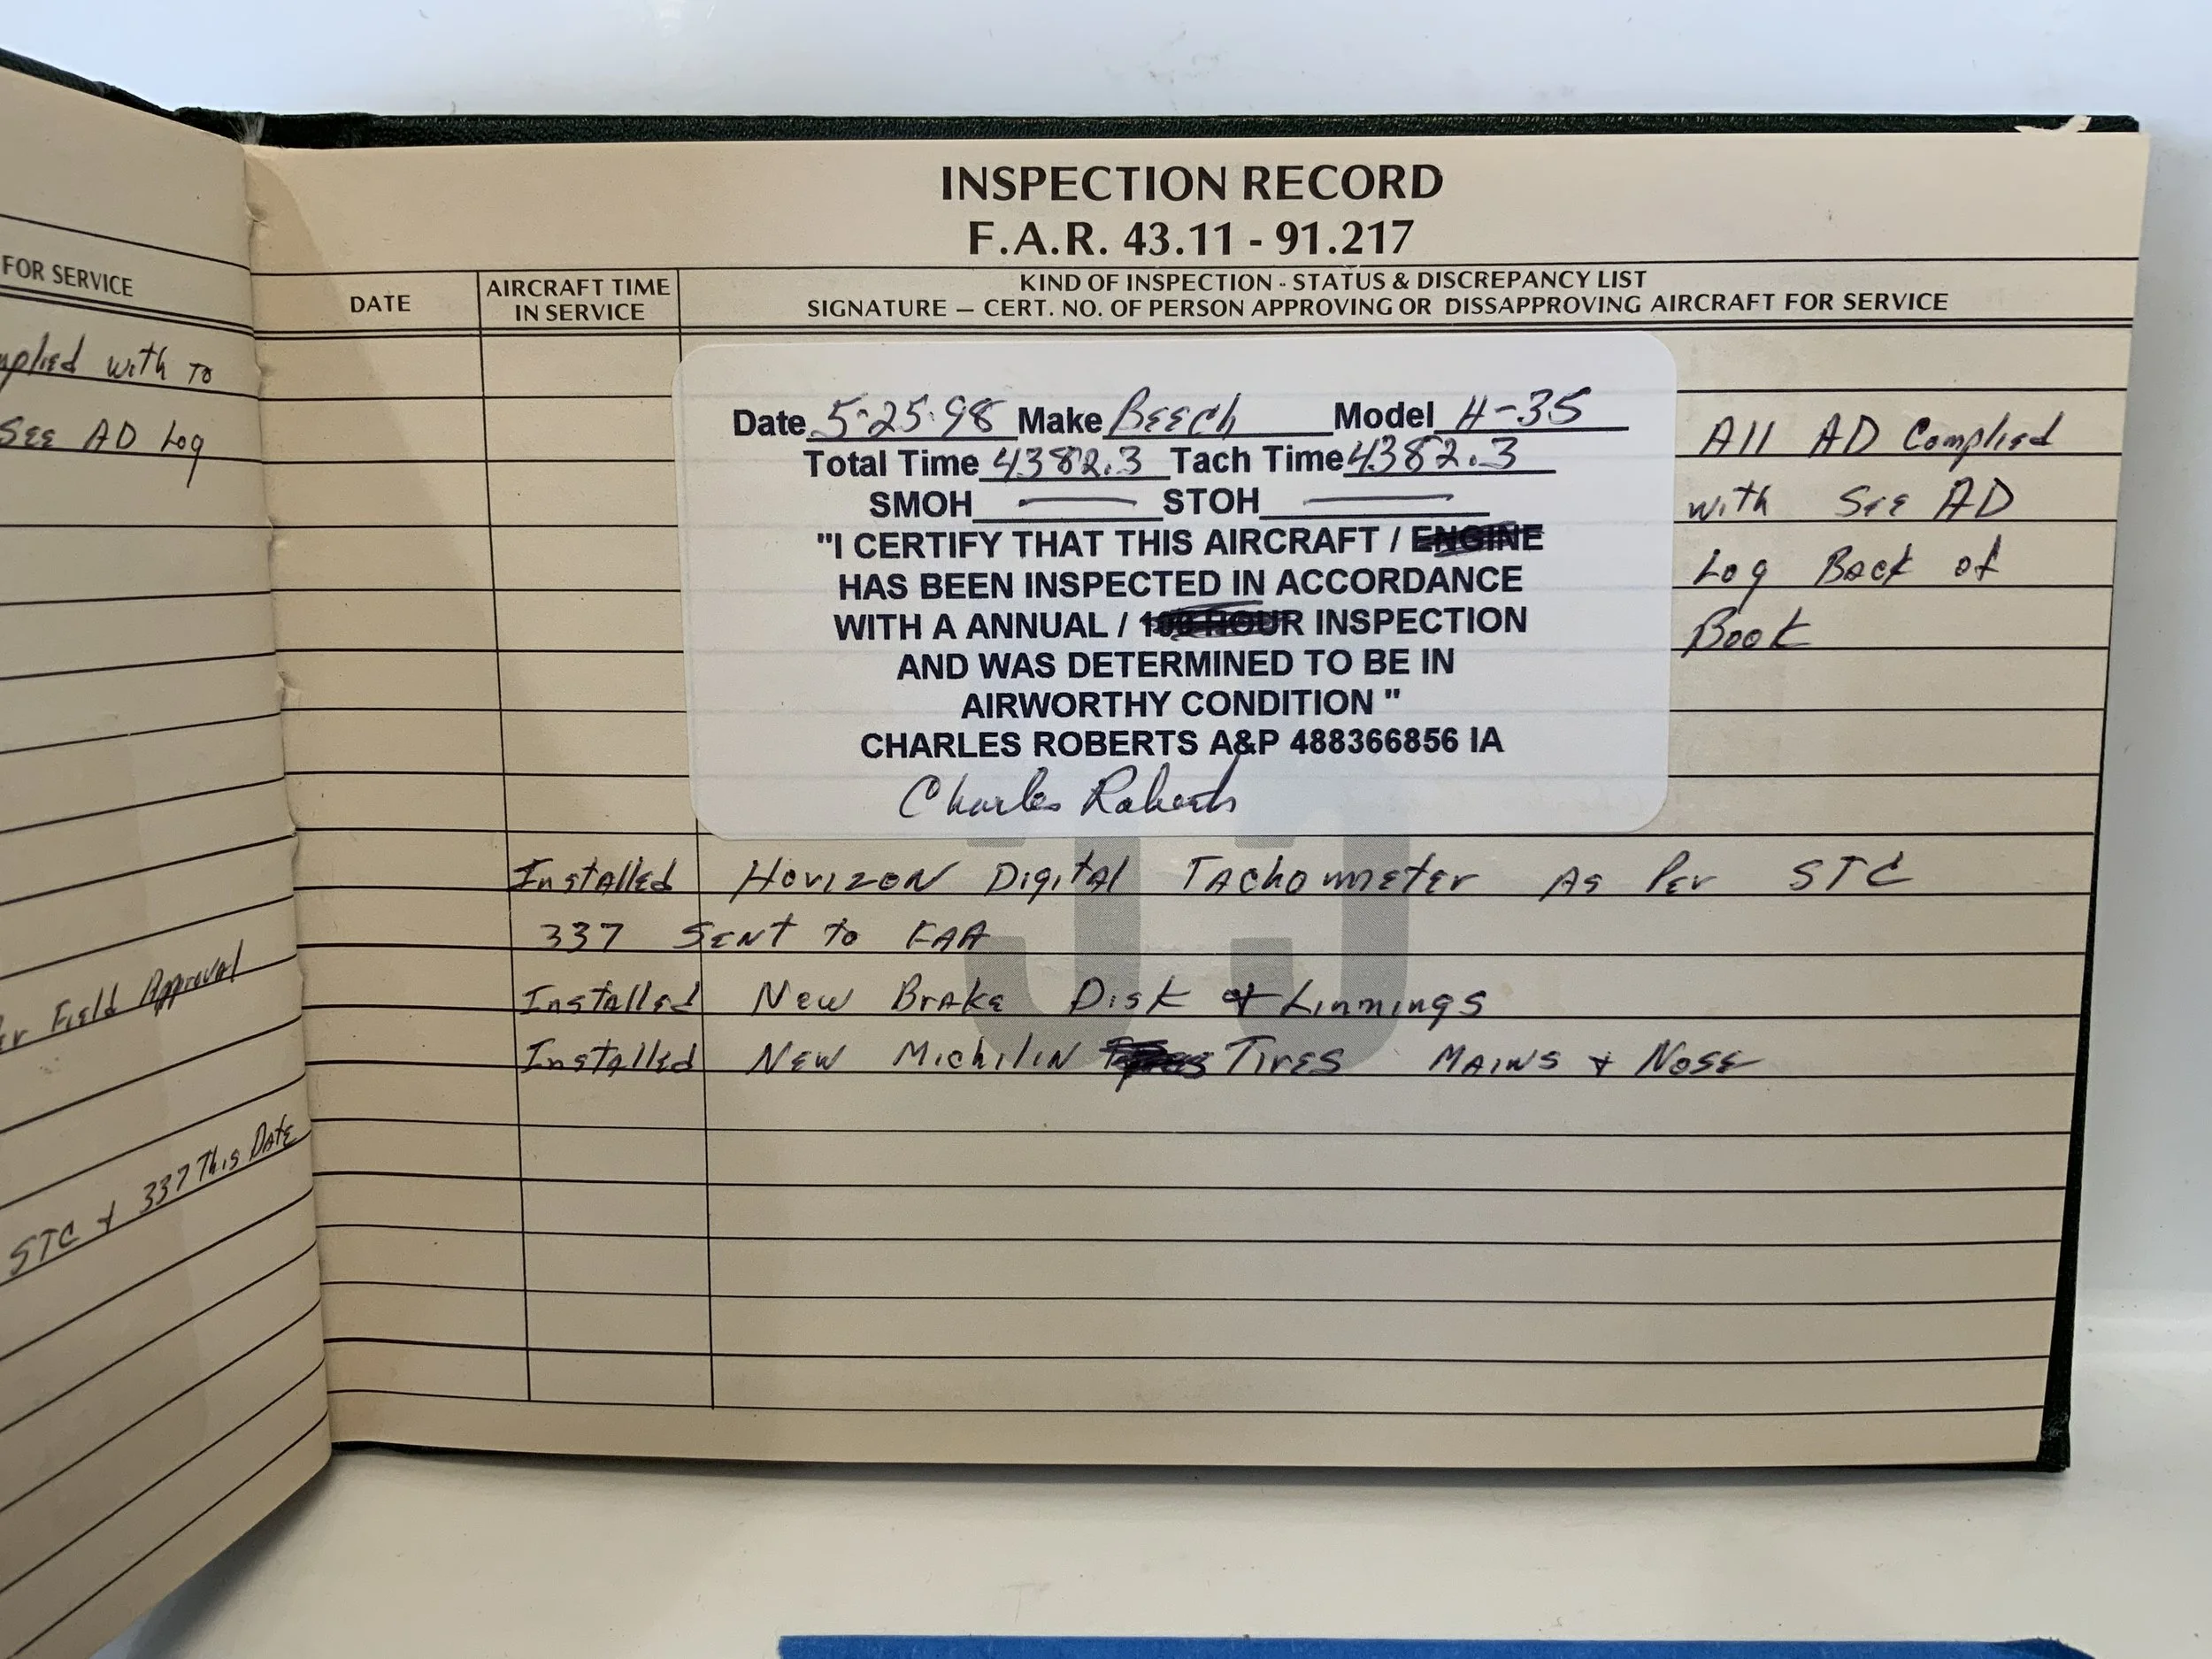 FOR SERVICE
mplied with To
SEE AD Log
er Field Approval
STC + 337 This Date
INSPECTION RECORD
F.A.R. 43.11 - 91.217
DATE
AIRCRAFT TIME
IN SERVICE
KIND OF INSPECTION - STATUS & DISCREPANCY LIST
SIGNATURE — CERT. NO. OF PERSON APPROVING OR DISSAPPROVING AIRCRAFT FOR SERVICE
Date 5-25-98 Make Beech Model H-35
Total Time 4382.3 Tach Time 4382.3
SMOH STOH
"I CERTIFY THAT THIS AIRCRAFT / ENGINE
HAS BEEN INSPECTED IN ACCORDANCE
WITH A ANNUAL / 100 HOUR INSPECTION
AND WAS DETERMINED TO BE IN
AIRWORTHY CONDITION "
CHARLES ROBERTS A&P 488366856 IA
Charles Roberts
All AD Complied
with See AD
Log Back of
Book
Installed Horizon Digital Tachometer As Per STC
337 Sent to FAA
Installed New Brake Disk & Linnings
Installed New Michilin Tires Mains + Nose